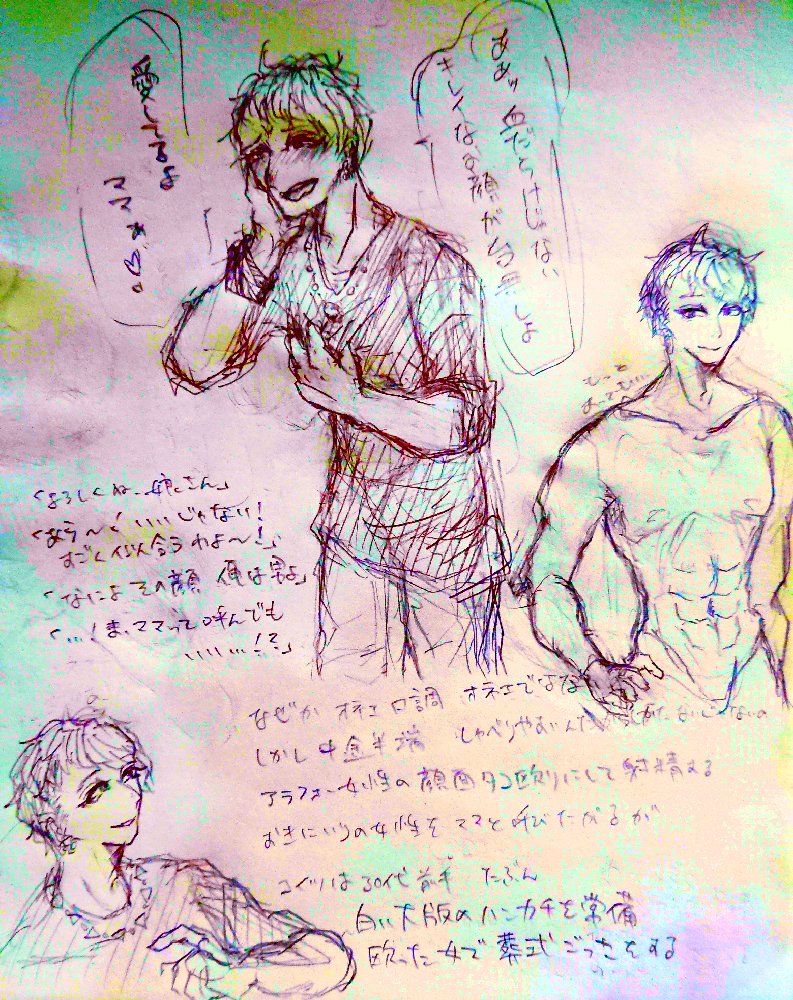 ああッ 血だらけじゃない
キレイなお顔が台無しよ
愛してるよ
ママぁ♡。
もっと
「よろしくね、娘さん」
「あら〜！いいじゃない！
すごく似合うわよ〜！」
「なによその顔 俺は男よ」
「…！ま、ママって呼んでも
いい…！？」
なぜか オネエ口調 オネエでは
しかし中途半端 しゃべりやすいんだから
アラフォー女性の顔面タコ殴りにして射精する
おきにいりの女性をママと呼びたがるが
コイツは30代前半 たぶん
白い大版のハンカチを常備
殴った女で葬式ごっこをする